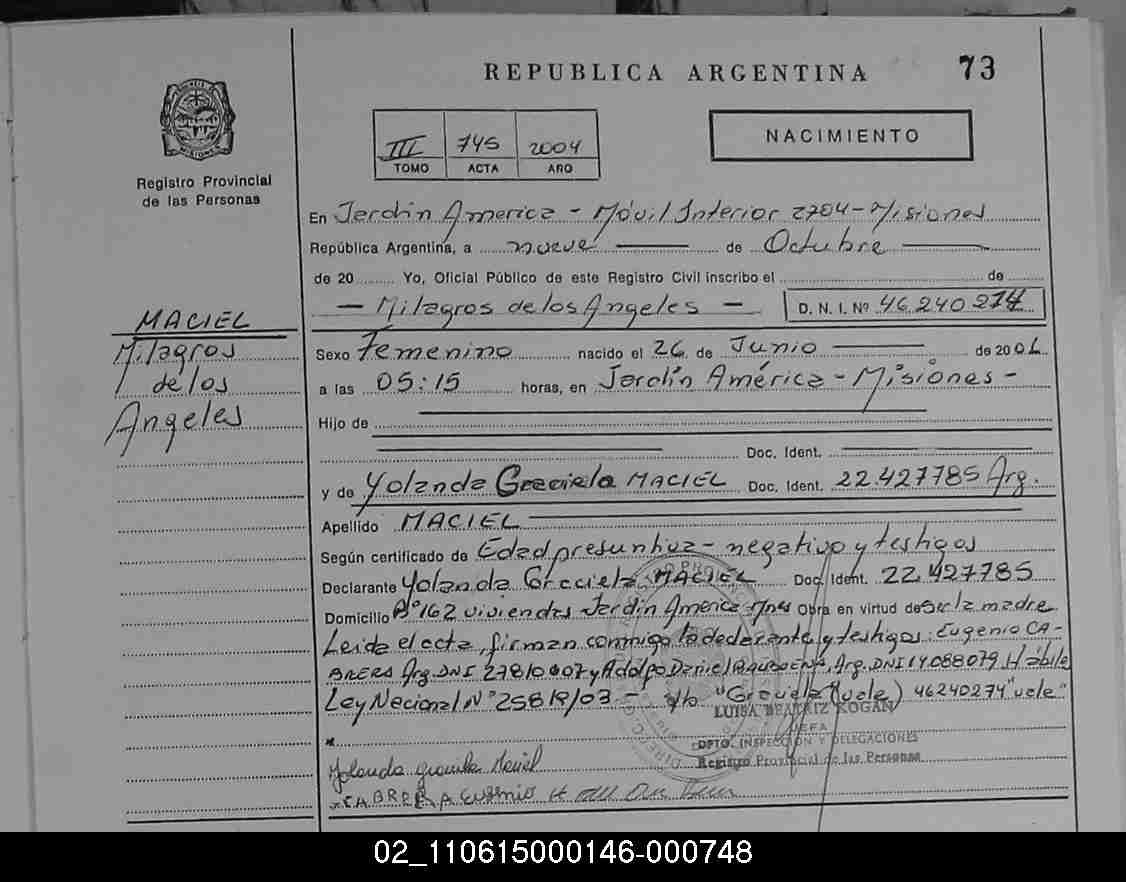 REPUBLICA ARGENTINA 73
Registro Provincial
de las Personas
III 745 2004
TOMO ACTA AÑO
NACIMIENTO
En Jardín America - Móvil Interior 2704 - Misiones
República Argentina, a nueve de Octubre
de 20 Yo, Oficial Público de este Registro Civil inscribo el de
- Milagros de los Angeles - D. N. I. Nº 46240274
MACIEL
Milagros
de los
Angeles
Sexo Femenino nacido el 26 de Junio de 200
a las 05:15 horas, en Jardín América - Misiones -
Hijo de
Doc. Ident.
y de Yolanda Graciela MACIEL Doc. Ident. 22.427785 Arg.
Apellido MACIEL
Según certificado de Edad presuntiva - negativo y testigos
Declarante Yolanda Graciela MACIEL Doc. Ident. 22.427785
Domicilio Bº 162 viviendas Jardín America Mnes Obra en virtud de Ser la madre
Leida el acta, firman conmigo la declarante y testigos: Eugenio CA-
BRERA Arg. DNI 27810007 y Adolfo Daniel BALBUENA, Arg. DNI 14.088079 Hábiles
Ley Nacional Nº 25819/03 - s/b "Graciela (vale) 46240274 "vale"
LUISA BEATRIZ KOGAN
JEFA
DPTO. INSPECCION Y DELEGACIONES
Registro Provincial de las Personas
Yolanda graciela Maciel
CABRERA Eugenio H
02_110615000146-000748